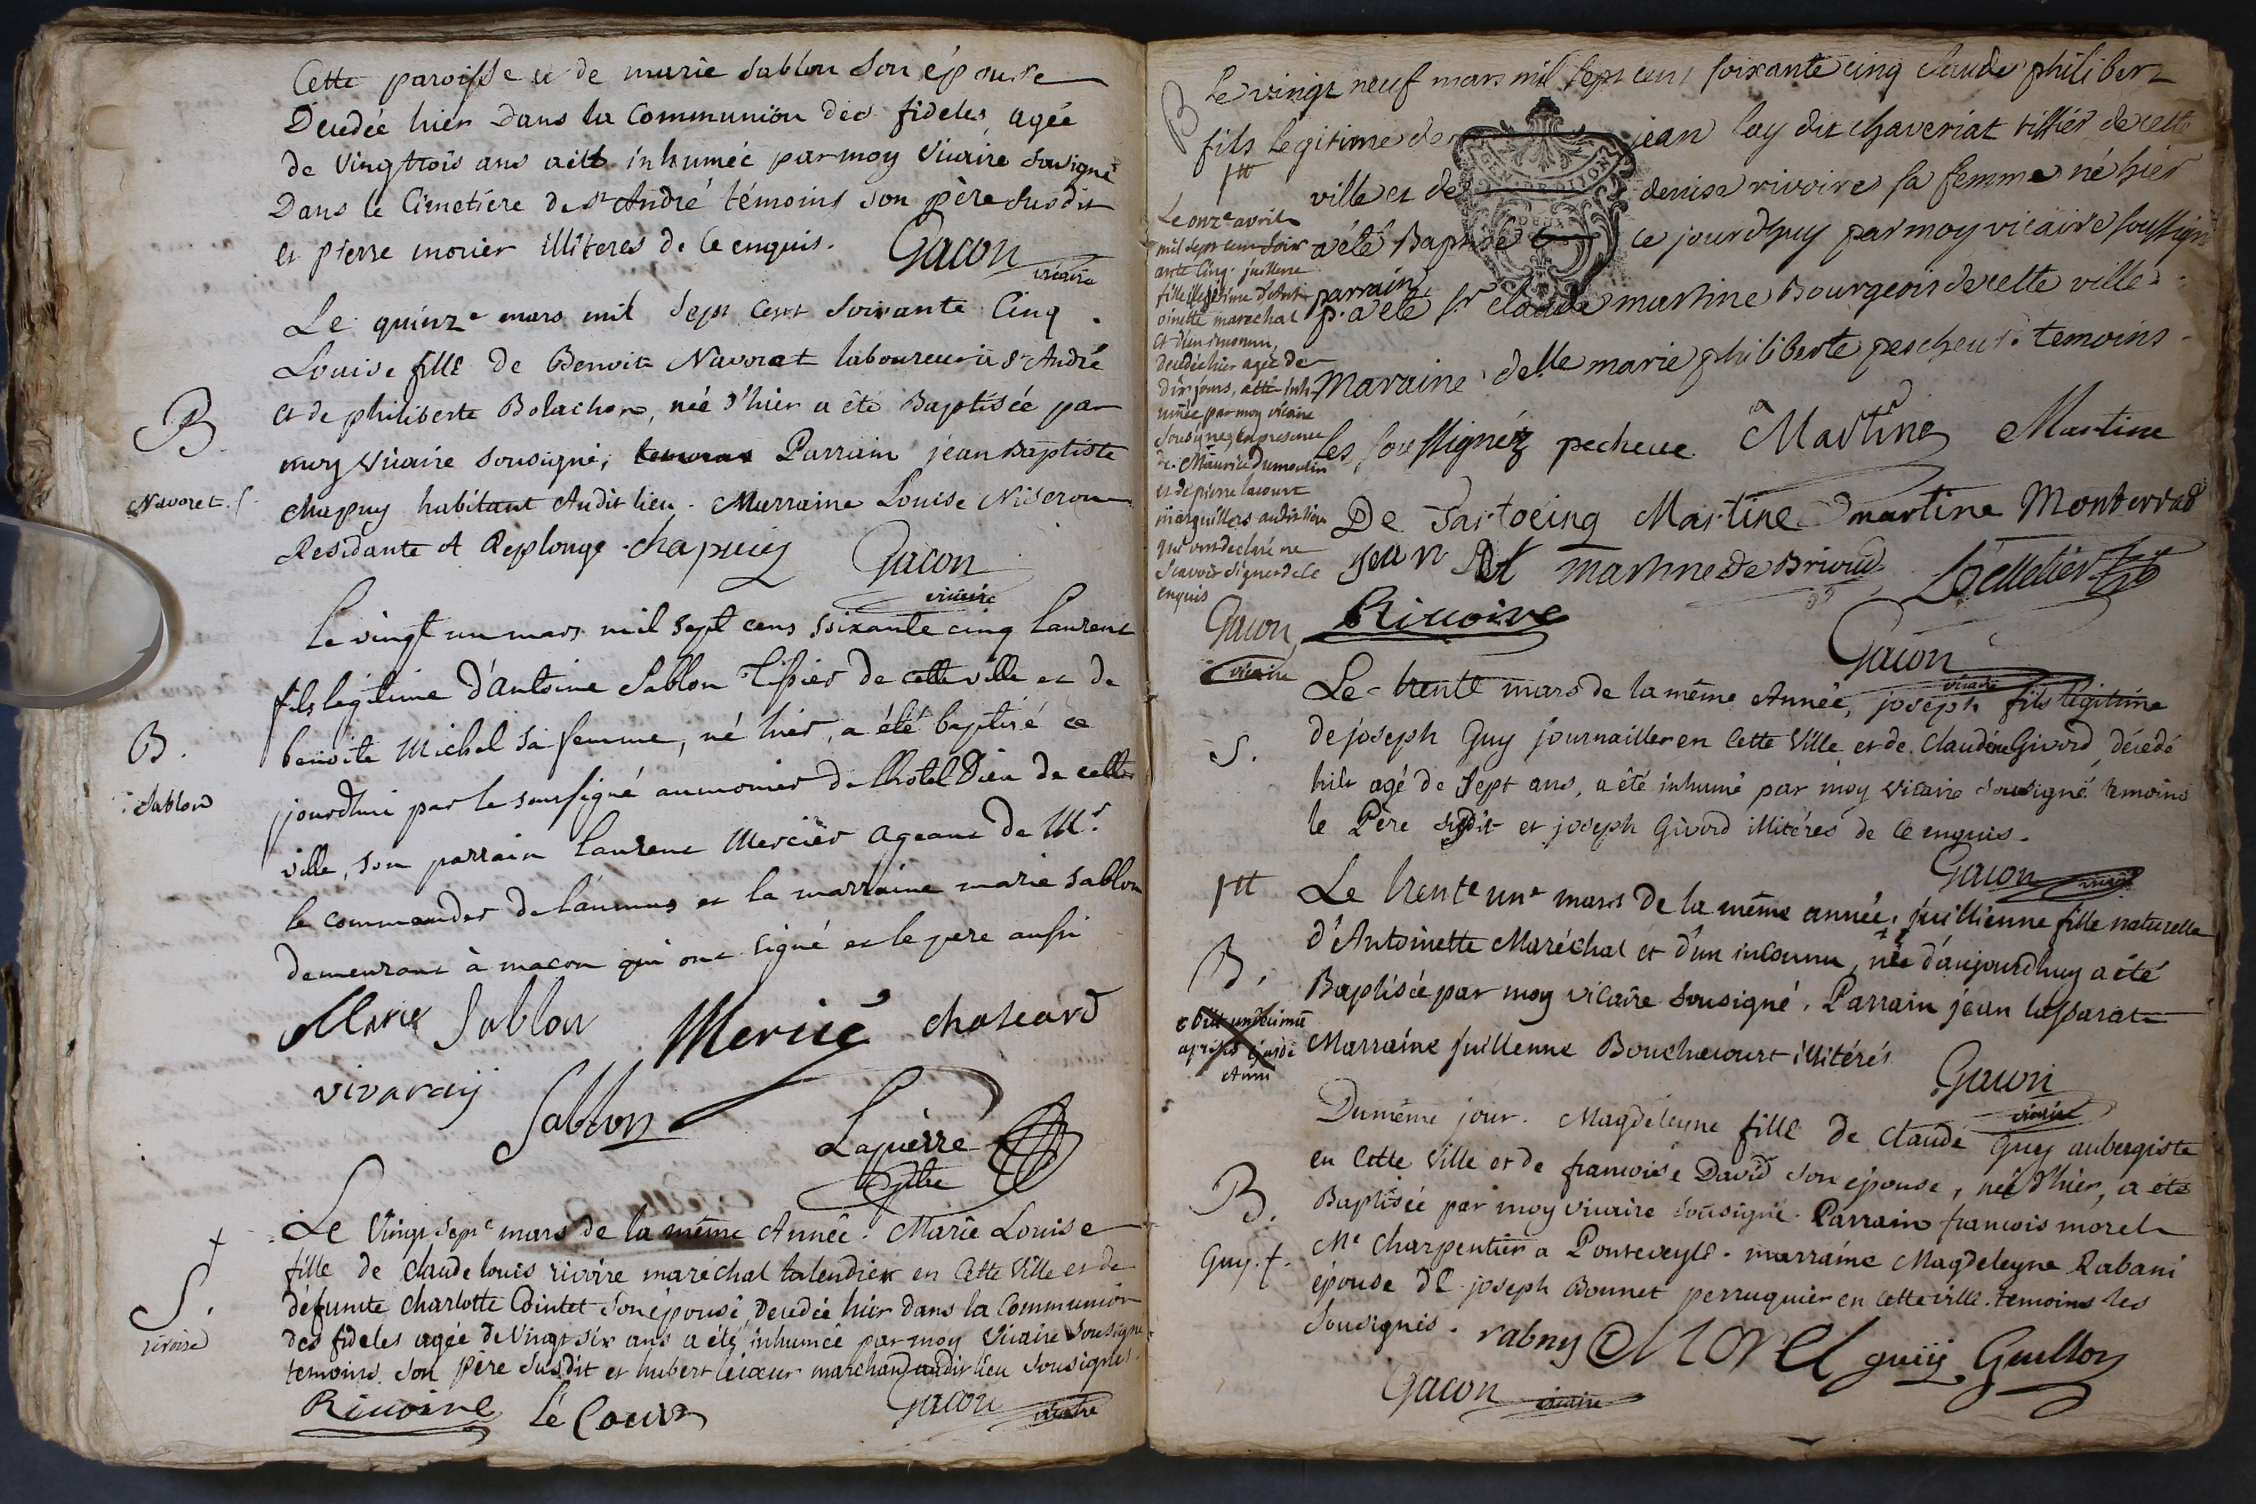 Cette paroisse et de marie Sablon son épouse
Décedée hier Dans la Communion des fideles, agée
de vingttrois ans a été inhumée par moy Vicaire sousigné
Dans le Cimetière de St André témoins son père susdit
et pierre morier illiteres de ce enquis. Gacon
vicaire
Le quinze mars mil sept cent soixante Cinq.
Louise fille de Benoit Navoret laboureur à St André
et de philiberte Bolachon, née d'hier a été Baptisée par
B
moy Vicaire sousigné, Parrain jean Baptiste
Navoret.
chapuy habitant Audit lieu. Marraine Louise Niseron
Residante A Replonge. chapuis Gacon
vicaire
Le vingt un mars mil sept cens soixante cinq Laurent
fils légitime d'antoine Sablon Tissier de cette ville et de
B.
benoite Michel sa femme, né hier, a été baptisé ce
Sablon
jourdhui par le soussigné aumonier de lhotel Dieu de cette
ville, son parrain Laurent Mercier ageant de Mr.
le commander de laumus et la marraine marie Sablon
demeurant à macon qui ont signé et le pere aussi
Marie Sablon Mercié chaseard
vivaray
Sablon
Lapierre
ptre
Le Vingt sept mars de la même Année. Marie Louise
fille de Claude louis rivoire maréchal talendier en Cette Ville et de
S.
défunte Charlotte Cointet son épouse, Decedée hier dans la Communion
rivoire
des fideles agée de Vingt six ans a été inhumée par moy Vicaire Sousigné
temoins son père susdit et hubert lecœur marchand audit lieu sousignés.
Rivoire Le Coeur Gacon vicaire
B
Le vingt neuf mars mil sept cent soixante cinq Claude philibert
fils legitime de jean lay dit chaveriat tissier de cette
ville et de denise rivoire sa femme né hier
a été Baptisé ce jourdhuy par moy vicaire soussigné
parrain
p. a été sr claude martine Bourgeois de cette ville.
Maraine delle marie philiberte pescheur. temoins
les soussignéz pecheur Martine Martine
De Sartoeing Martine martine Monterrad
jean martine de Brioud Pelletier
Rivoire
Gacon
vicaire
Le onze avril
mil sept cent soix
ante Cinq. juillenne
fille illegitime d'Ant
oinette marechal
et d'un inconnu,
decedée hier agée de
dix jours, a été inh
umée par moy vicaire
sousigné, en presence
de Maurice Dumoulin
et de pierre lacourt
marguillers audit lieu
qui ont declaré ne
scavoir signer de ce
enquis
Gacon
vicaire
Le trente mars de la même Année, joseph fils legitime
de joseph Guy journaillier en Cette Ville et de Claudine Givord, décédé
S.
hier agé de sept ans, a été inhumé par moy Vicaire Sousigné temoins
le Père susdit et joseph Givord illitérés de ce enquis.
Gacon vicaire
Le trente un mars de la même année, juillienne fille naturelle
d'Antoinette Maréchal et d'un inconnu, née d'aujourdhuy a été
B.
Baptisée par moy vicaire Sousigné. Parrain jean lassarat
obiit undecimâ
aprilis ejusdem
Anni
Marraine juillenne Bouchacourt illitérés
Gacon
vicaire
Du même jour. Magdeleyne fille de Claude Guy aubergiste
en Cette Ville et de francoise David son épouse, née d'hier, a été
B.
Baptisée par moy Vicaire Sousigné. Parrain francois morel
Guy. f.
Me Charpentier a Ponteveyle. marraine Magdeleyne Rabani
épouse de joseph Bonnet perruquier en cette ville. temoins les
Sousignés. rabny Morel guiy Guillon
Gacon vicaire